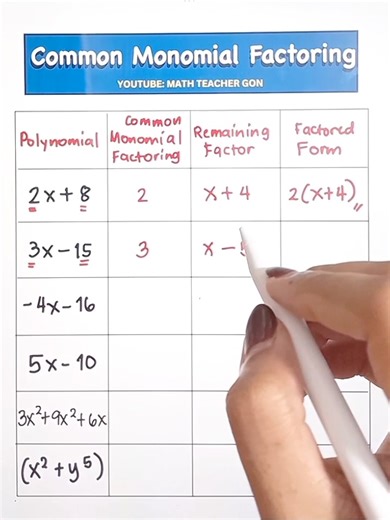 Common Monomial Factoring
YOUTUBE: MATH TEACHER GON
Polynomial
Common
Monomial
Factoring
Remaining
Factor
Factored
Form
2x + 8
2
x + 4
2(x+4)
3x − 15
3
x −
-4x − 16
5x − 10
3x²+9x²+6x
(x² + y⁵)